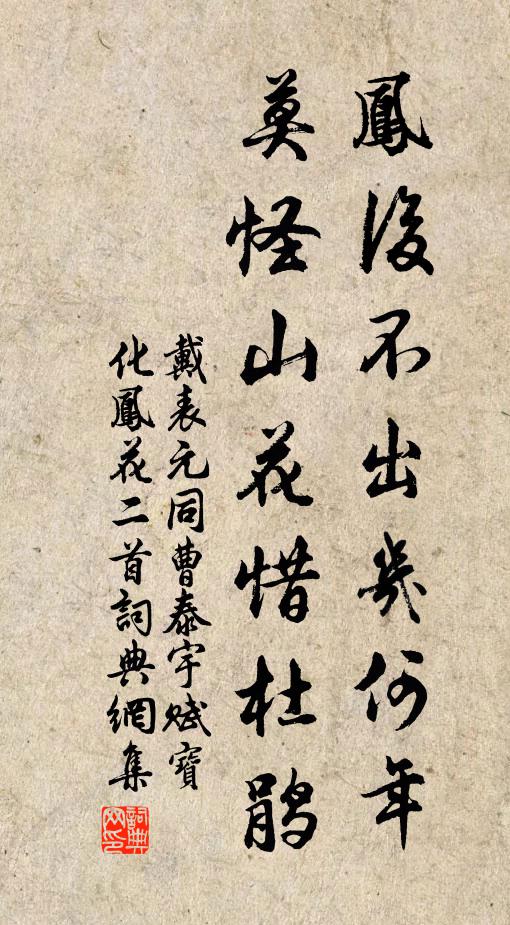 鳳後不出幾何年
莫怪山花惜杜鵑
戴表元同曹泰宇賦寶
化鳳花二首詞典網集
詞典
网印